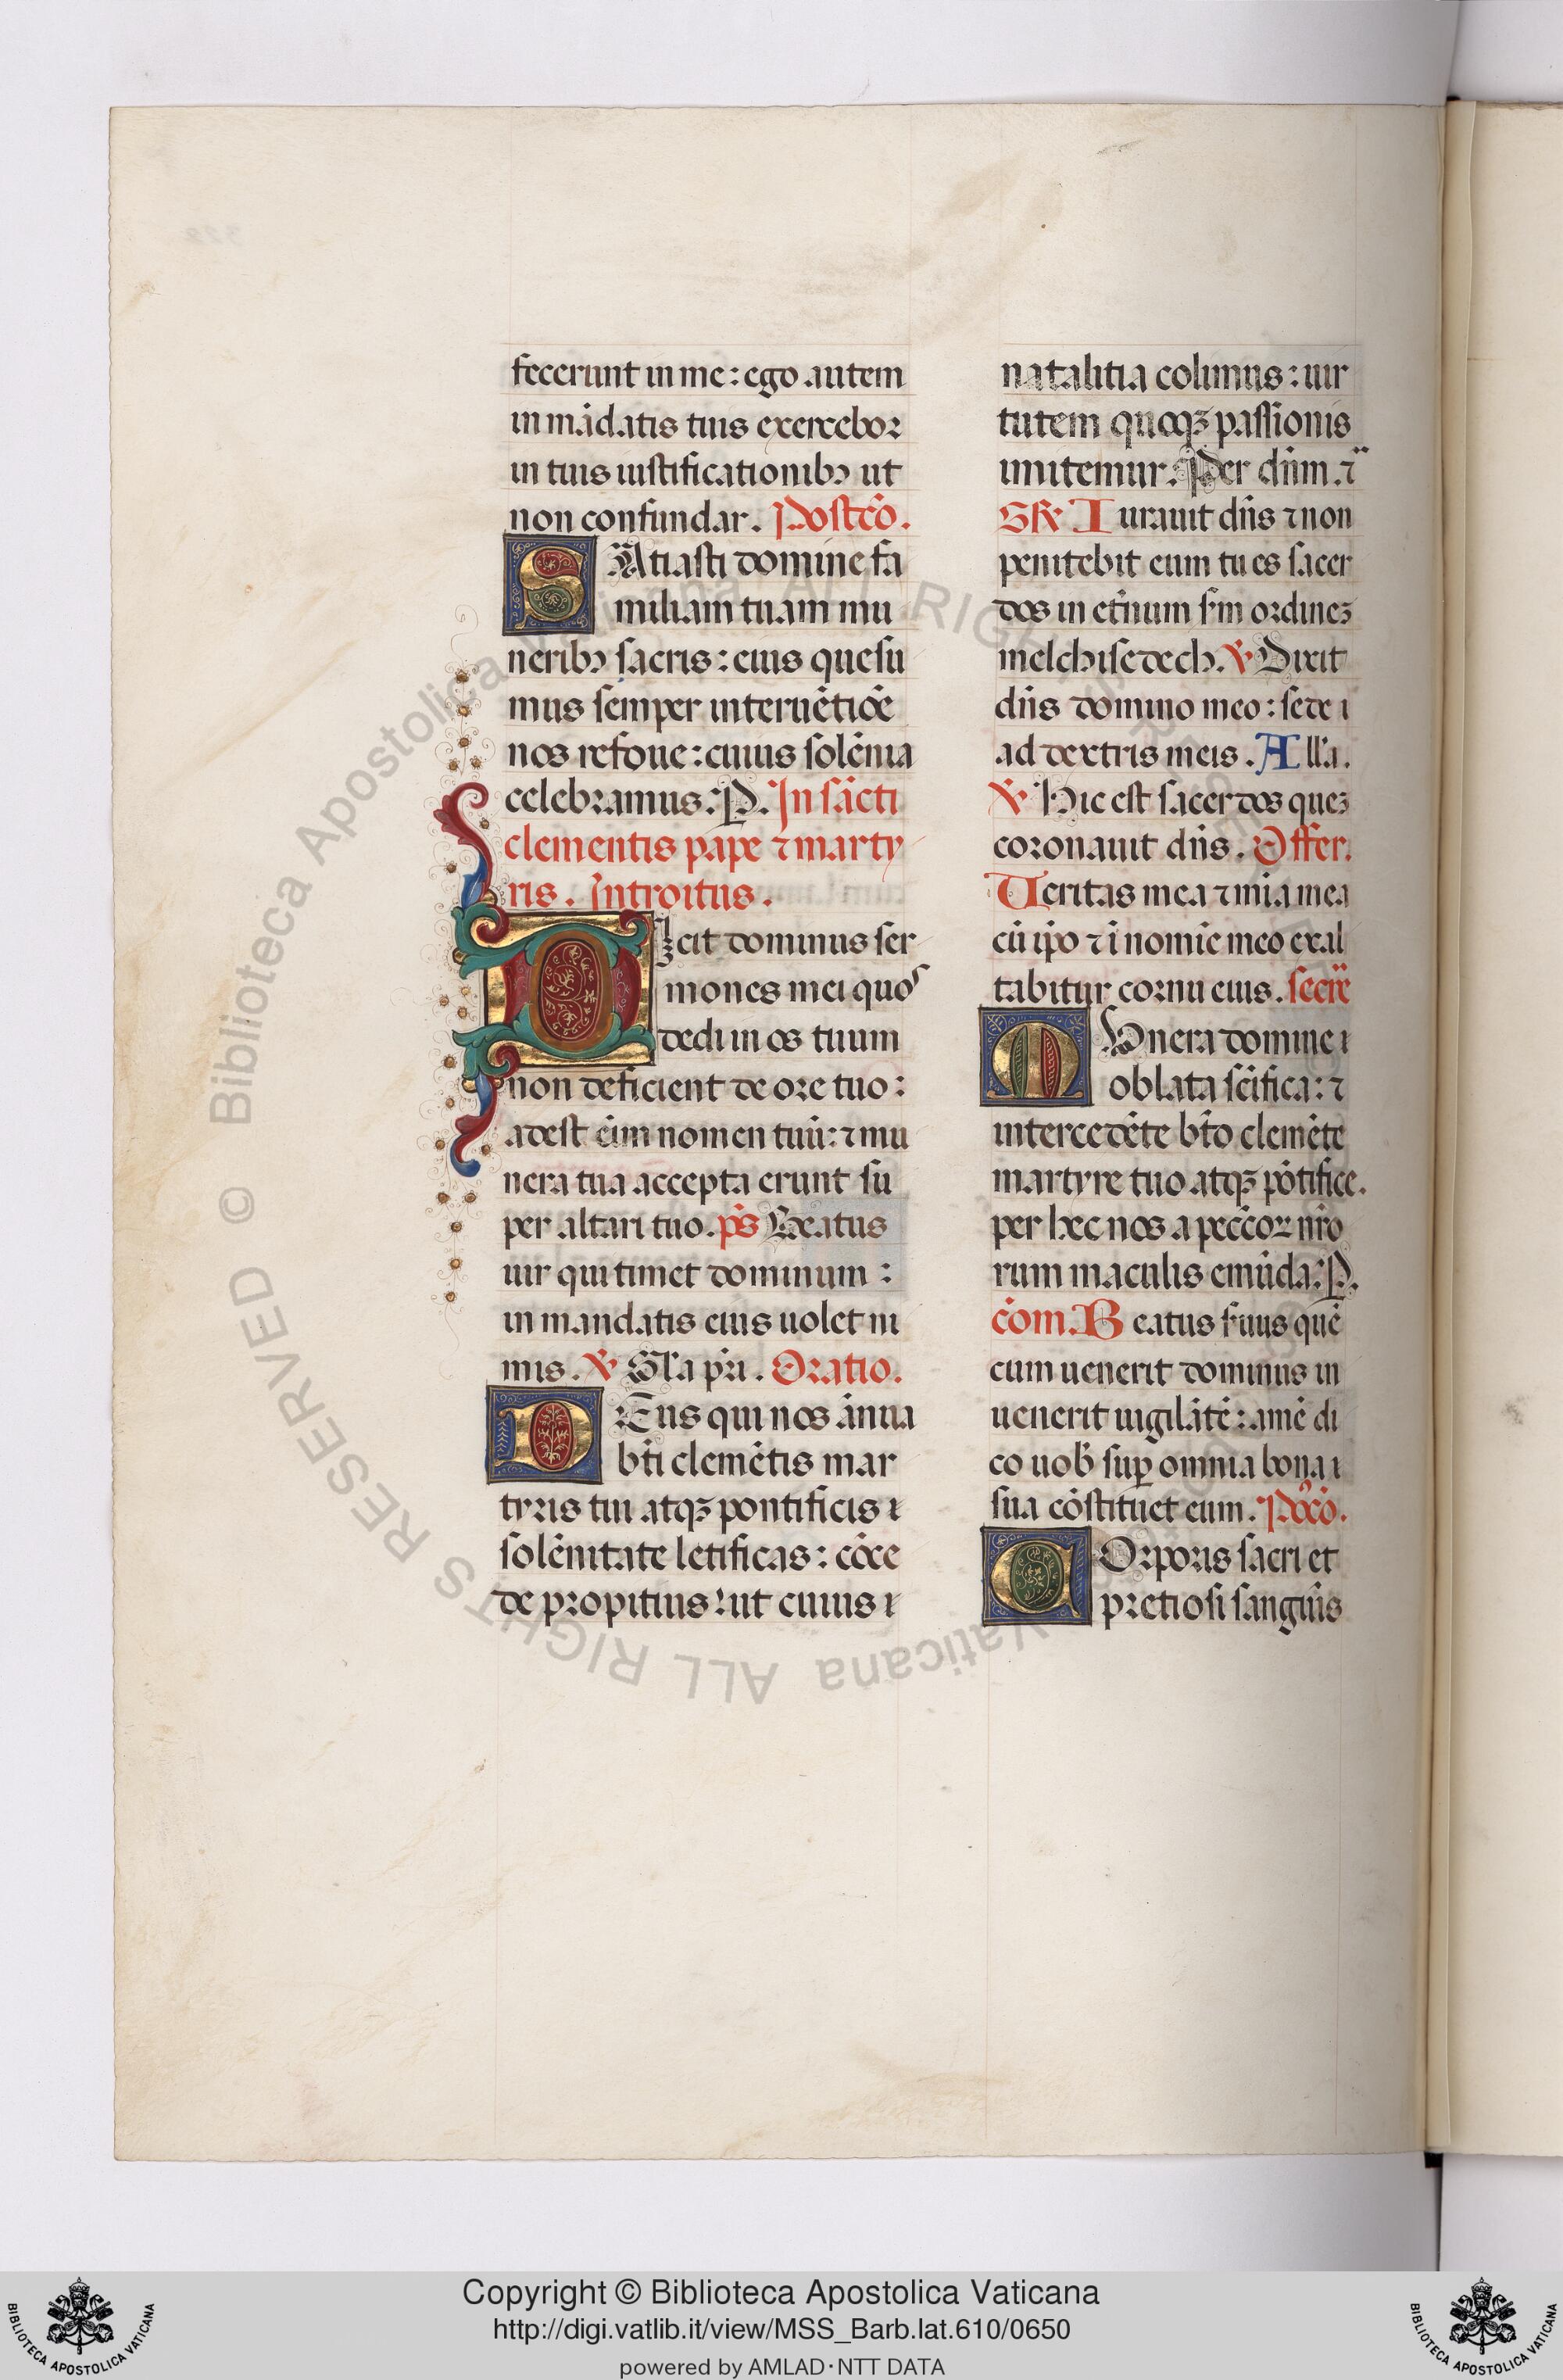 fecerunt in me : ego autem
in mādatis tuis exercebor
in tuis iustificationibꝰ ut
non confundar . Postcō .
SAtiasti domine fa
miliam tuam mu
neribꝰ sacris : eius quesu
mus semper interuētiōe
nos refoue : cuius solēnia
celebramus : P. In sācti
clementis pape ⁊ marty
ris . Introitus .
DIcit dominus ser
mones mei quos
dedi in os tuum
non deficient de ore tuo :
adest eīm nomen tuū : ⁊ mu
nera tua accepta erunt su
per altari tuo . pš Beatus
uir qui timet dominum :
in mandatis eius uolet ni
mis . ℣ Gľa pr̄i . Oratio .
DEus qui nos ānua
bt̄i clemētis mar
tyris tui atqꝫ pontificis
solēnitate letificas : cōce
de propitius : ut cuius
natalitia colimus : uir
tutem quoqꝫ passionis
imitemur : Per dn̄m . ⁊
GR̄ Iurauit dn̄s ⁊ non
penitebit eum tu es sacer
dos in et̄num sm̄ ordineꝫ
melchisedech . ℣ Dixit
dn̄s domino meo : sede
ad dextris meis . Allā .
℣ Hic est sacerdos queꝫ
coronauit dn̄s . Offer .
Ueritas mea ⁊ mīa mea
cū ip̄o ⁊ ī nomīe meo exal
tabitur cornu eius . secrē
MUnera domine
oblata sc̄ifica : ⁊
intercedēte bt̄o clemēte
martyre tuo atqꝫ pōtifice .
per hec nos a pecc̄oꝝ nr̄o
rum maculis emūda : P.
cōm . Beatus s̄uus quē
cum uenerit dominus in
uenerit uigilātē : amē di
co uob̄ suꝑ omnia bona
sua cōstituet eum . Pꝰcō .
COrporis sacri et
pretiosi sanguīs
© Biblioteca Apostolica Vaticana ALL RIGHTS RESERVED
Copyright © Biblioteca Apostolica Vaticana
http://digi.vatlib.it/view/MSS_Barb.lat.610/0650
powered by AMLAD·NTT DATA
BIBLIOTECA APOSTOLICA VATICANA
BIBLIOTECA APOSTOLICA VATICANA